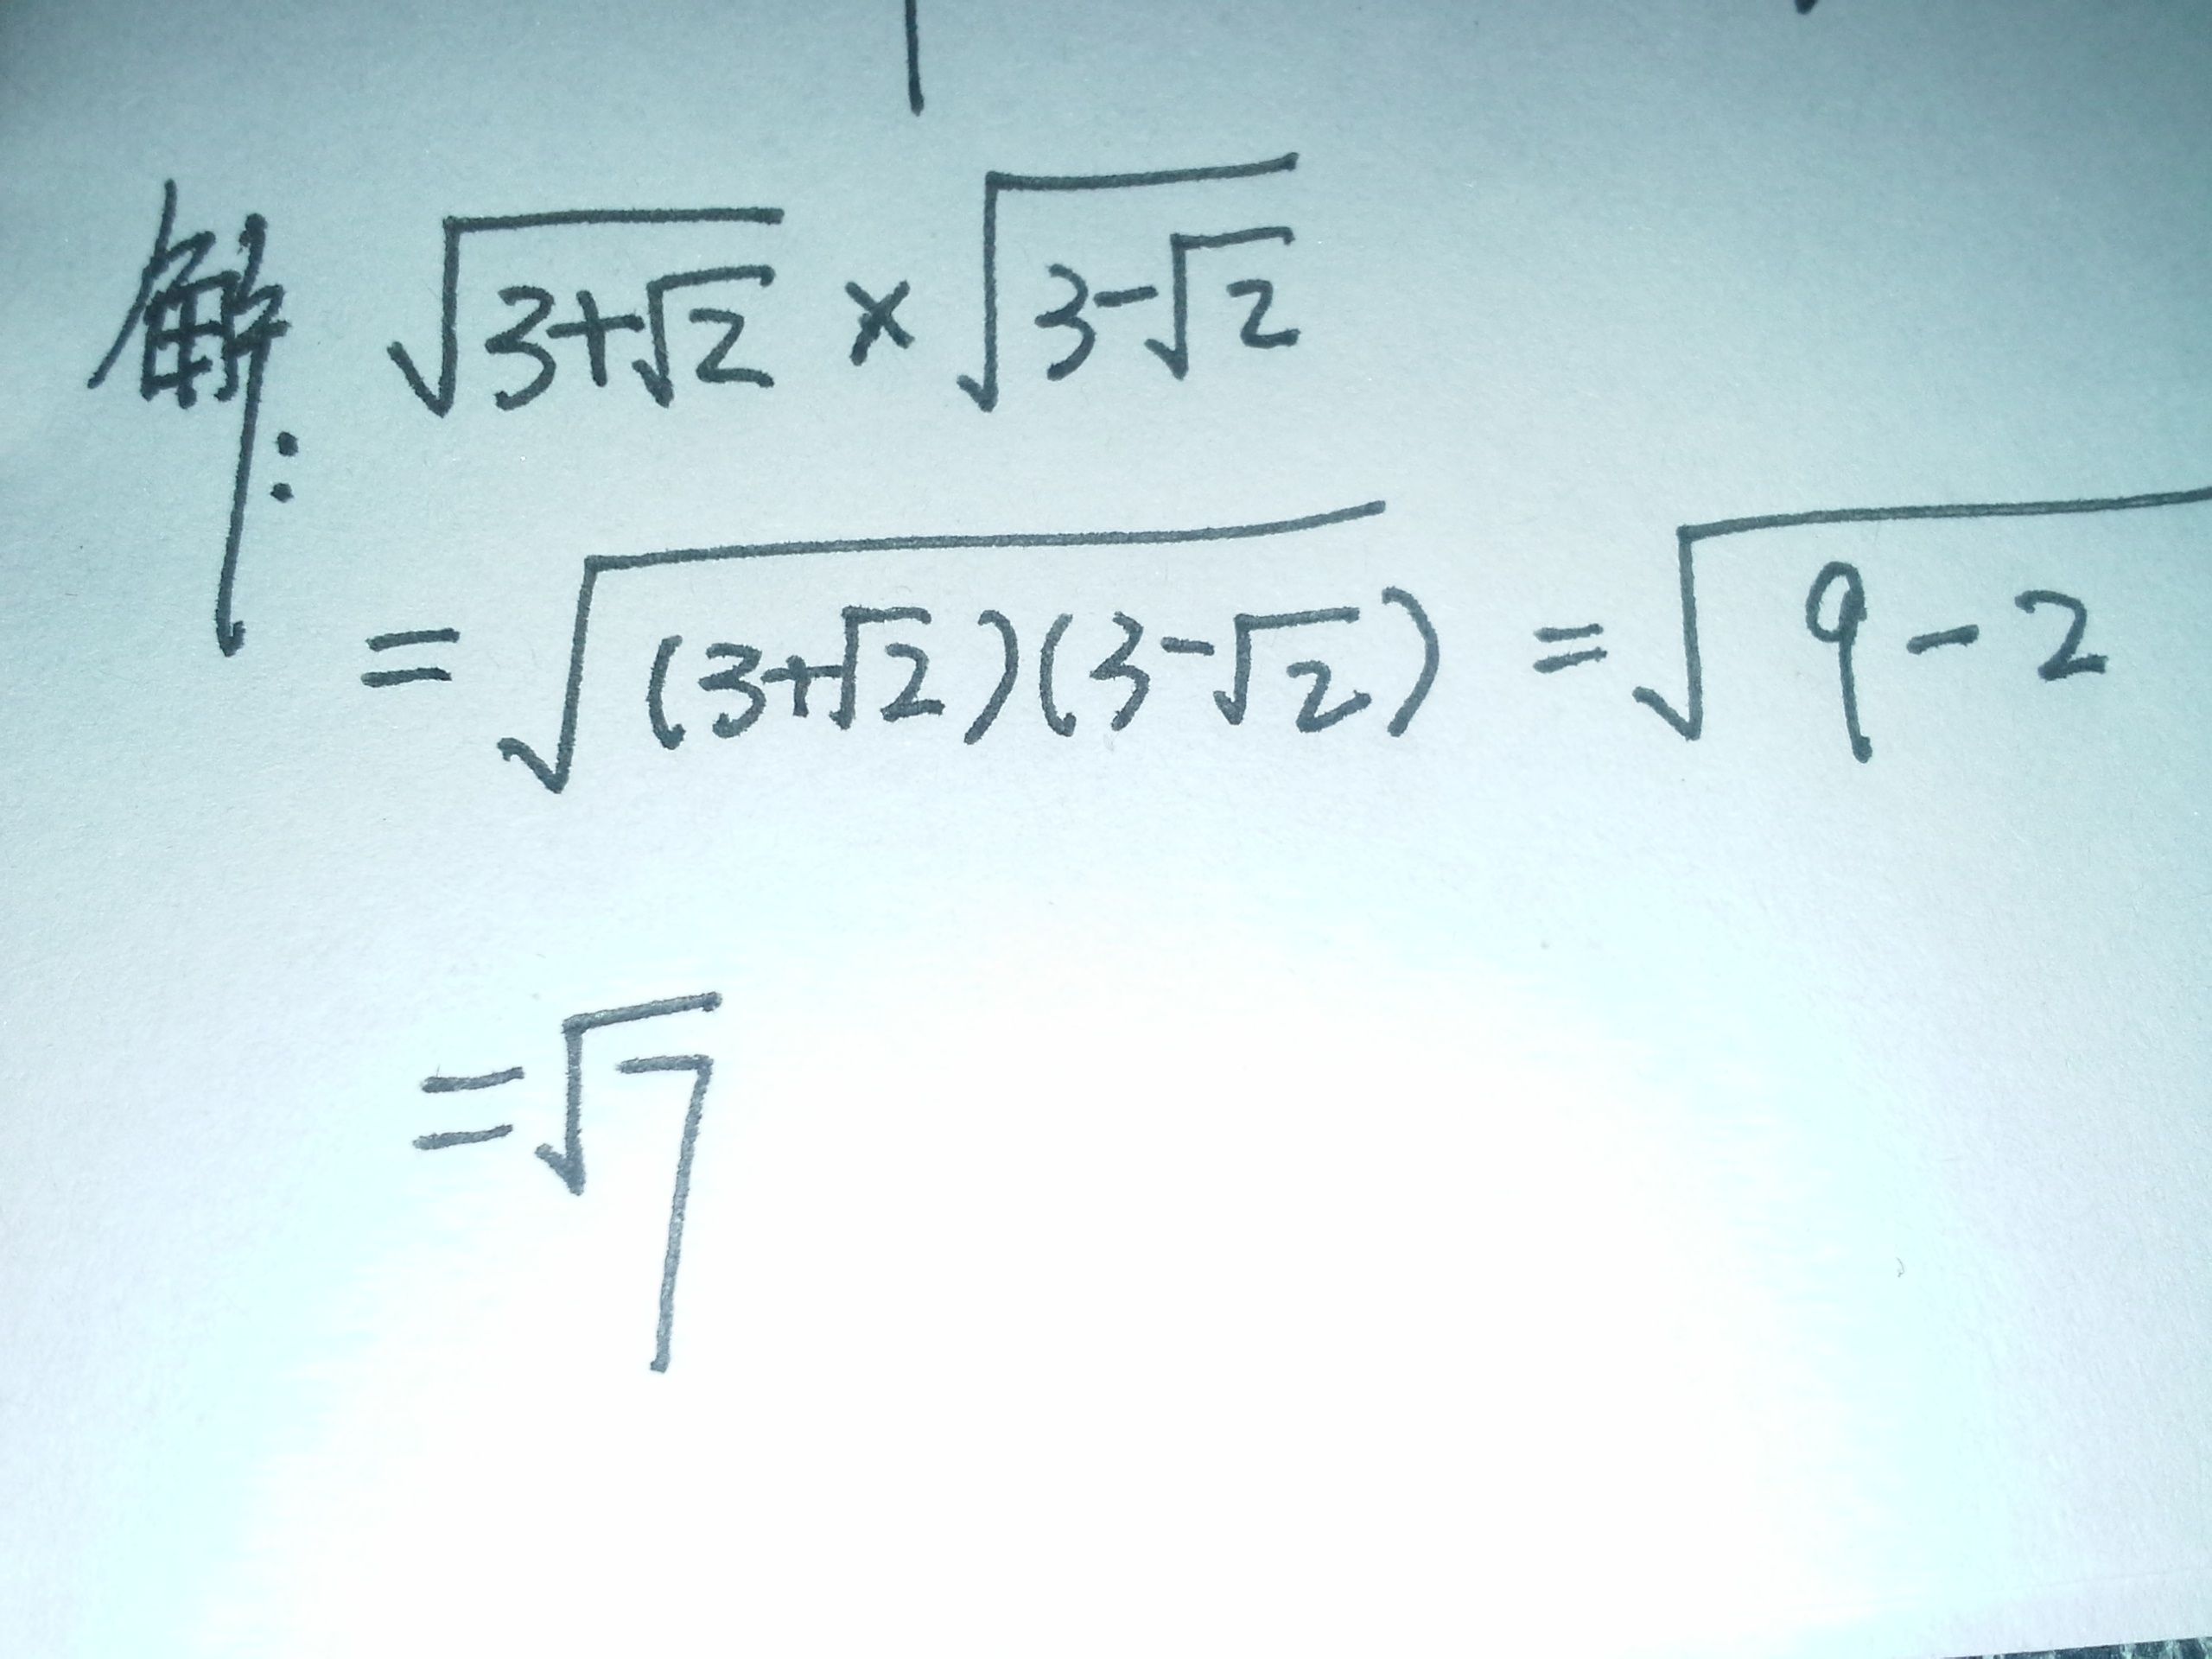 解: √(3+√2) × √(3-√2)
= √((3+√2)(3-√2)) = √(9-2)
= √7